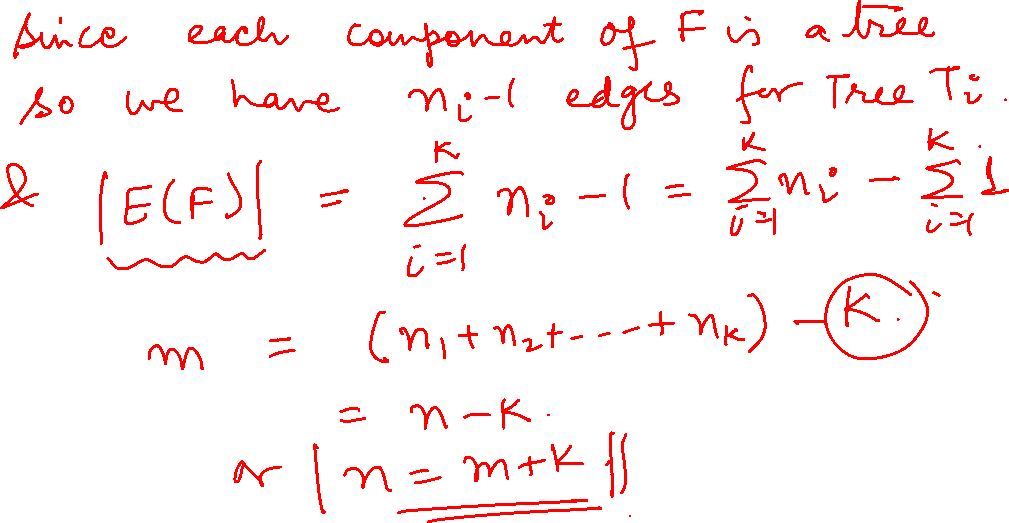 since each component of F is a tree
so we have nᵢ-1 edges for Tree Tᵢ.
& |E(F)| = ∑_{i=1}^{K} nᵢ - 1 = ∑_{i=1}^{K} nᵢ - ∑_{i=1}^{K} 1
m = (n₁ + n₂ + --- + n_K) - K.
= n - K.
or | n = m + K ||